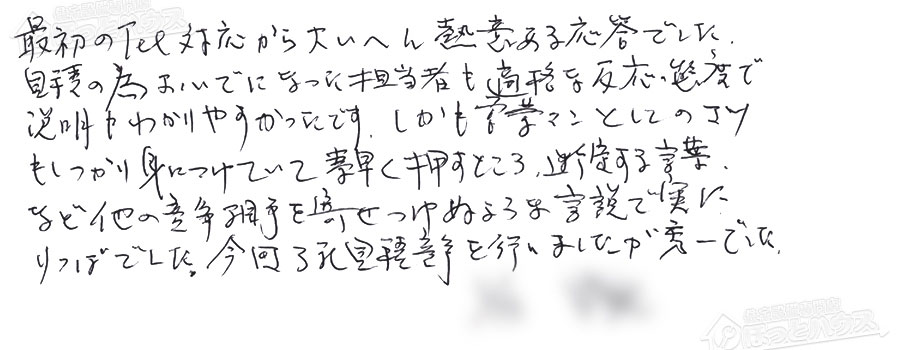 最初のTel対応から大いへん熱意ある応答でした.
見積の為おいでになった担当者も適格な反応、態度で
説明もわかりやすかったです.しかも営業マンとしてのコツ
もしっかり身につけていて素早く押すところ、断定する言葉、
など他の競争相手を寄せつけぬような言説で実に
りっぱでした。今回3社見積競争を行いましたが秀一でした.
ほっとハウス